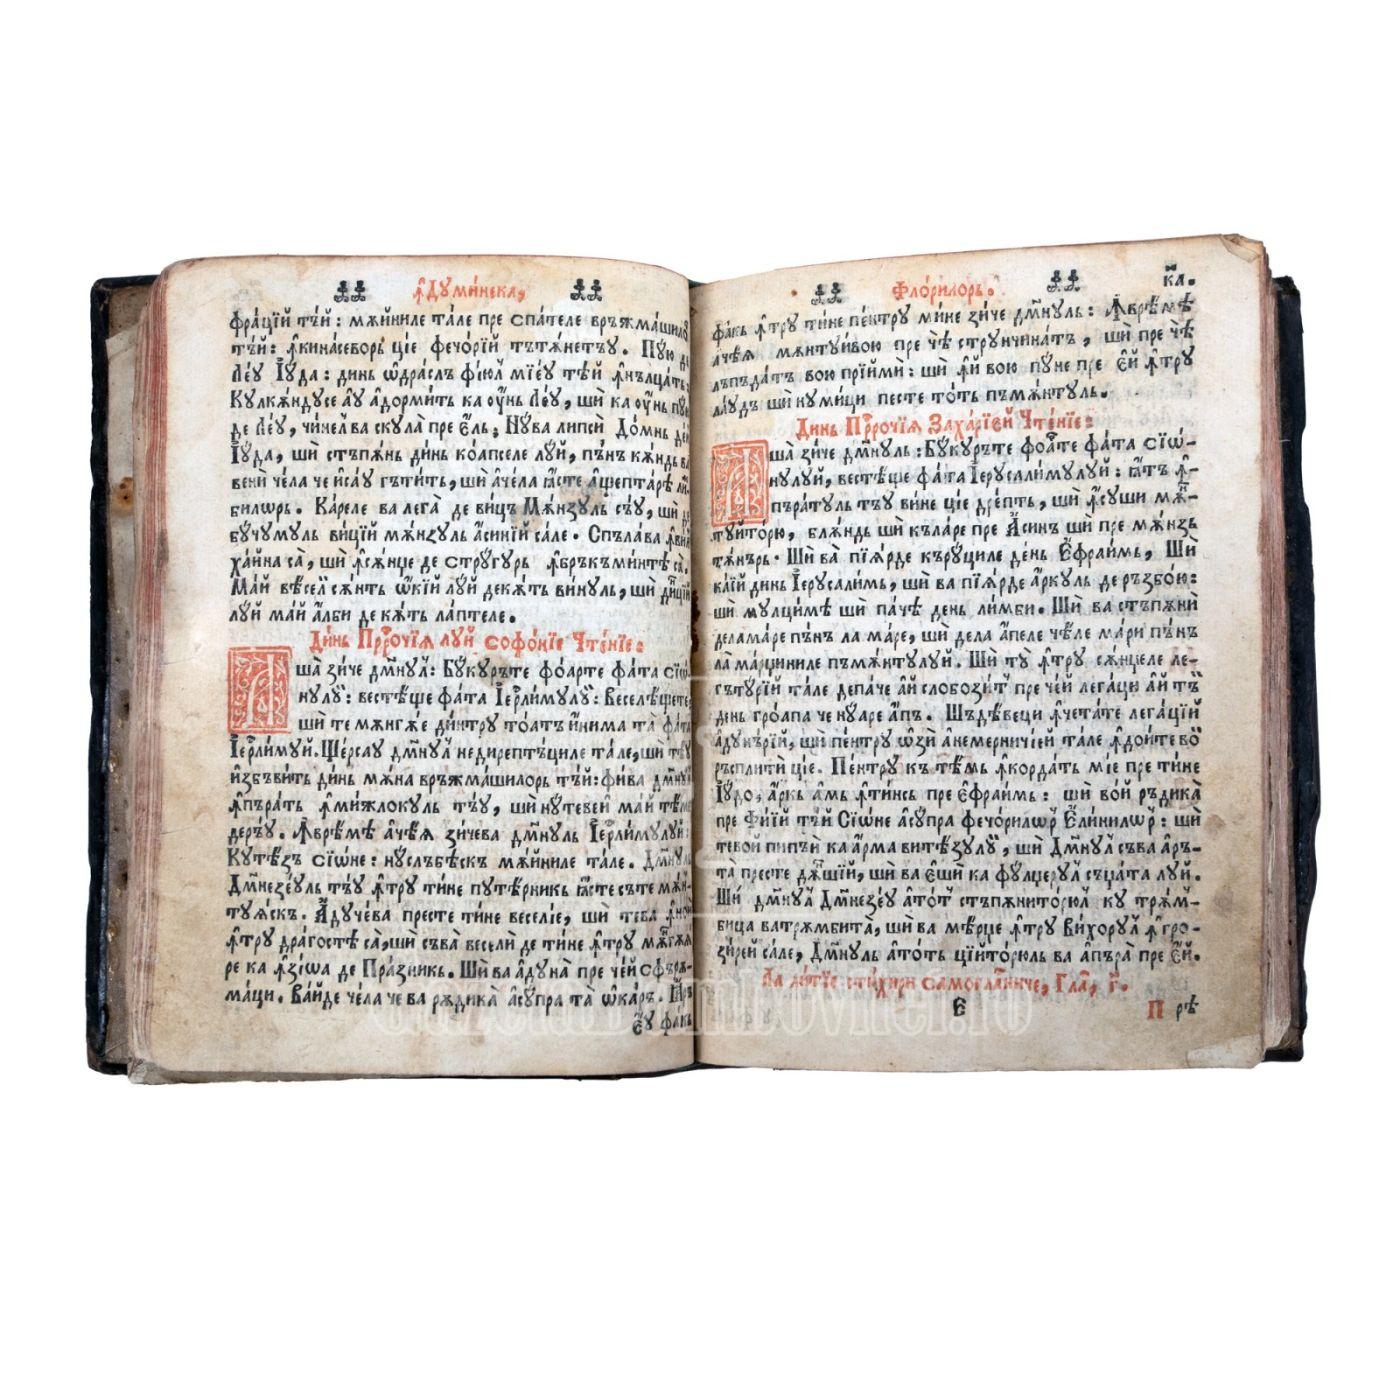 ꙟДꙋми́нека,
фра́ций тъ́й: мѫ́йниле та́ле пре спа́теле връжма́шилѡ
тъ́й: ꙟ҆кина́севорь ці́е фечо́рїй та́тѫнетꙋ. Пꙋ́ю де
Ле́ꙋ Іꙋ́да: динь ѡ҆дра́слъ фі́юл мїе́ꙋ те́й ꙟ҆нълца́т:
Кꙋлкѫ́ндꙋсе а҆ꙋ адорми́ть ка ᲂу҆нь Ле́ꙋ, шѝ ка ᲂу҆нь пꙋ́й
де Ле́ꙋ, чи́нел ва скꙋла̀ пре є҆́ль; Нꙋва липсѝ До́мнь де́н
Іꙋ́да, шѝ стъпѫ́нь ди́нь ко́апселе лꙋ́й, пъ́нъ кѫ́ндь ва
вени̂ че́ла че йса́ꙋ гъти́ть, шѝ аче́ла ꙗ҆́сте а҆щепта́рѣ ли́м
билѡрь. Ка́реле ва лега̀ де ви́цъ Мѫ́нзꙋль съ́ꙋ, шѝ де
бꙋ́чꙋмꙋль ви́цїй мѫ́нзꙋль а҆си́нїй са́ле. Спъла́ва ꙟ҆ви́н
ха́йна са̀, шѝ ꙟ҆сѫ́нџе де стрꙋ́гꙋрь ꙟ҆бръкъми́нтѣ са̀.
Ма́й вѣ́сел сѫ́нть ѡ҆́кїй лꙋ́й декѫ́ть ви́нꙋль, шѝ ди́нцїй
лꙋ́й май а҆́лби де кѫ́ть ла́птеле.
Ди́нь Прⷪ҇ро́чїѧ лꙋ́й Софо́нїе Чте́нїе:
А҆ша̀ зи́че дм҃нꙋл: Бꙋ́кꙋръте фоа́рте фа́та Сїѡ́
нꙋлꙋ́й: вестѣ́ще фа́та І҆ерⷭ҇ли́мꙋлꙋй: Веселѣ́щете,
шѝ те мѫнгѫ́е ди́нтрꙋ тоа́тъ и҆́нима та̀ фа́та
І҆ерⷭ҇ли́мꙋй. Ще́рсаꙋ дм҃нꙋл недирептъ́циле та́ле, шѝ тѣꙋ
избъви́ть ди́нь мѫ́на връжма́шилорь тъ́й: фи́ва дм҃нꙋл
ꙟ҆пъра́ть ꙟ҆ми́жлокꙋль тъ́ꙋ, шѝ нꙋтеве́й ма́й те́ме
де ръ́ꙋ. ꙟ҆врѣ́мѣ ачѣ́ѧ зи́чева дм҃нꙋль І҆ерⷭ҇ли́мꙋлꙋй:
Кꙋтѣ́зъ Сїѡ́не: нꙋ слъбѣ́скъ мѫ́йниле та́ле. Дм҃нꙋль
Дм҃незе́ꙋль тъ́ꙋ ꙟ҆́трꙋ ти́не пꙋтѣ́рникь ꙗ҆́сте съте мѫ́н
тꙋѧ́скъ. А҆дꙋ́чева престе ти́не весели́е, шѝ тева̀ ꙟ҆нои̂
ꙟ҆́трꙋ дра́гостѣ са̀, шѝ съва̀ весели̂ де ти́не ꙟ҆́трꙋ мѫ́нгѫѧ
ре ка ꙟ҆зи́ѡа де Пра́зникь. Шѝ ва а҆дꙋна̀ пре че́й сфъръ́-
маци. Ва́йде че́ла че ва рѫдика̀ а҆сꙋ́пра та̀ ѡ҆ка́ръ. І҆а́ръ
є҆ꙋ фа́кь
Фло́рилорь.
к҃а.
фа́кь ꙟ҆трꙋ ти́не пе́нтрꙋ ми́не зи́че дм҃нꙋль: ꙟ҆врѣ́мѣ
ачѣ́ѧ мѫнтꙋи́вою пре чѣ̀ стрꙋнчина́тъ, шѝ пре чѣ̀
лъпъда́тъ вою прїими̂: шѝ ꙟ҆й вою пꙋ́не пре є҆́й ꙟ҆трꙋ
ла́ꙋдъ шѝ нꙋми́ци песте то́ть пъмѫ́нтꙋль.
Динь Прⷪ҇ро́чїѧ Заха́рїей Чте́нїе:
А҆ша̀ зи́че дм҃нꙋль: Бꙋ́кꙋръте фоа́рте фа́та Сїѡ́-
нꙋлꙋй, вестѣ́ще фа́та І҆ерꙋсали́мꙋлꙋй: ꙗ҆́тъ ꙟ҆-
пъра́тꙋль тъ́ꙋ ви́не ці́е дре́пть, шѝ ꙟ҆сꙋши мѫ́н-
тꙋито́рю, блѫ́ндь шѝ къла́ре пре А҆́синь шѝ пре мѫ́нзь
тѫ́нърь. Шѝ ва̀ пїѧ́рде кърꙋ́циле де́нь Є҆фраи́мь, Шѝ
ка́їй динь І҆ерꙋсали́мь, шѝ ва пїѧ́рде а҆́ркꙋль де ръзбо́ю:
шѝ мꙋлци́мѣ шѝ па́че день ли́мби. Шѝ ва стъпѫни̂
дела ма́ре пъ́нъ ла ма́ре, шѝ дела а҆́пеле чѣ́ле ма́ри пъ́нъ
ла̀ ма́рџиниле пъмѫ́нтꙋлꙋй. Шѝ тꙋ̀ ꙟ҆трꙋ сѫ́нџеле ле-
гътꙋ́рїй та́ле депа́че а҆й слобози́ть пре че́й лега́ци а҆й тъ́й
день гро́апа че нꙋа́ре а҆́пъ. Шъдѣ́веци ꙟ҆четъ́те лега́цїй
адꙋнъ́рїй, шѝ пе́нтрꙋ ѡ҆́зи а҆ немерничї́ей та́ле ꙟ҆дои́те вою̀
ръсплъти̂ ці́е. Пе́нтрꙋ къ те́мь ꙟ҆корда́ть мі́е пре ти́не
Іꙋ́до, а҆́ркь а҆мь ꙟ҆ти́нсь пре Є҆фраи́мь: шѝ во́й ръдика̀
пре фи́їй тъ́й Сїѡ́не а҆сꙋ́пра фечо́рилѡр Є҆́линилѡр: шѝ
тево́й пипъ́й ка а҆́рма вите́зꙋлꙋй, шѝ Дм҃нꙋл съва̀ а҆ръ-
та̀ престе дѫ́нши́й, шѝ ва є҆ши̂ ка фꙋ́лџерꙋл съџа́та лꙋ́й.
Шѝ дм҃нꙋл Дм҃незе́ꙋ а҆то́ть стъпѫнито́рюл кꙋ трѫ́м-
бица ва трѫмбита̀, шѝ ва мѣ́рџе ꙟ҆трꙋ Ви́хорꙋл ꙟ҆гро-
зи́рей са́ле, Дм҃нꙋль а҆то́ть циито́рюль ва а҆пъра̀ пре є҆́й.
Ла Лїті́е сти́хири самогла́сниче, Гла́с, г҃.
Є
Прѣ